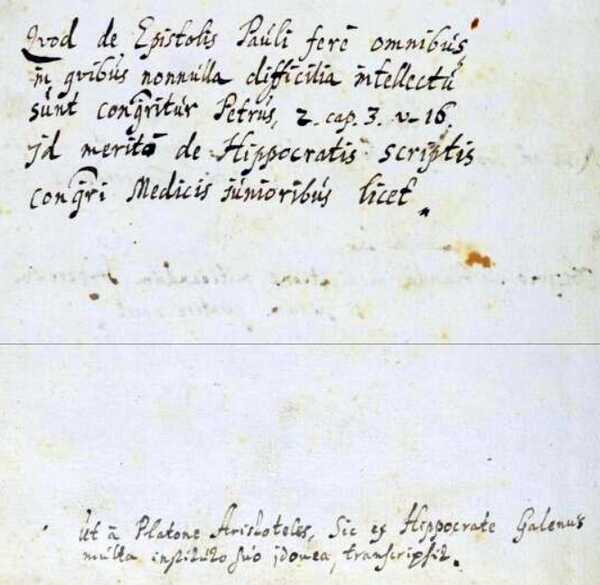 Qvod de Epistolis Pauli ferè omnibus,
in qvibus nonnulla difficilia intellectu
sunt conqveritur Petrus, 2. cap. 3. v. 16.
id meritò de Hippocratis scriptis
conqveri Medicis junioribus licet.
Ut à Platone Aristoteles, Sic ex Hippocrate Galenus
multa instituto suo idonea, transcripsit.